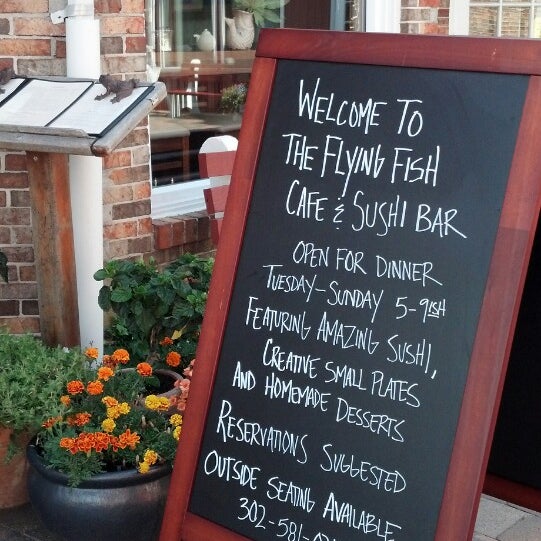 WELCOME TO
THE FLYING FISH
CAFE & SUSHI BAR
OPEN FOR DINNER
TUESDAY-SUNDAY 5-9ISH
FEATURING AMAZING SUSHI,
CREATIVE SMALL PLATES
AND HOMEMADE DESSERTS
RESERVATIONS SUGGESTED
OUTSIDE SEATING AVAILABLE
302-581-